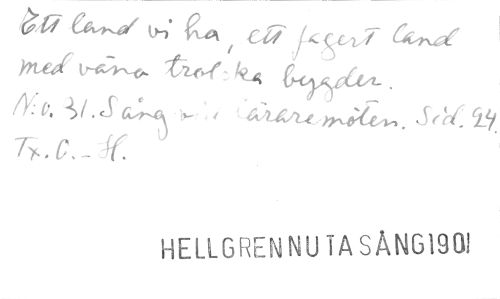 Ett land vi ha, ett fagert land
med våna trolska bygder.
N:o. 31. Sång vid läraremöten. Sid. 24.
Tx. C. - H.
HELLGREN NUTASÅNG 1901